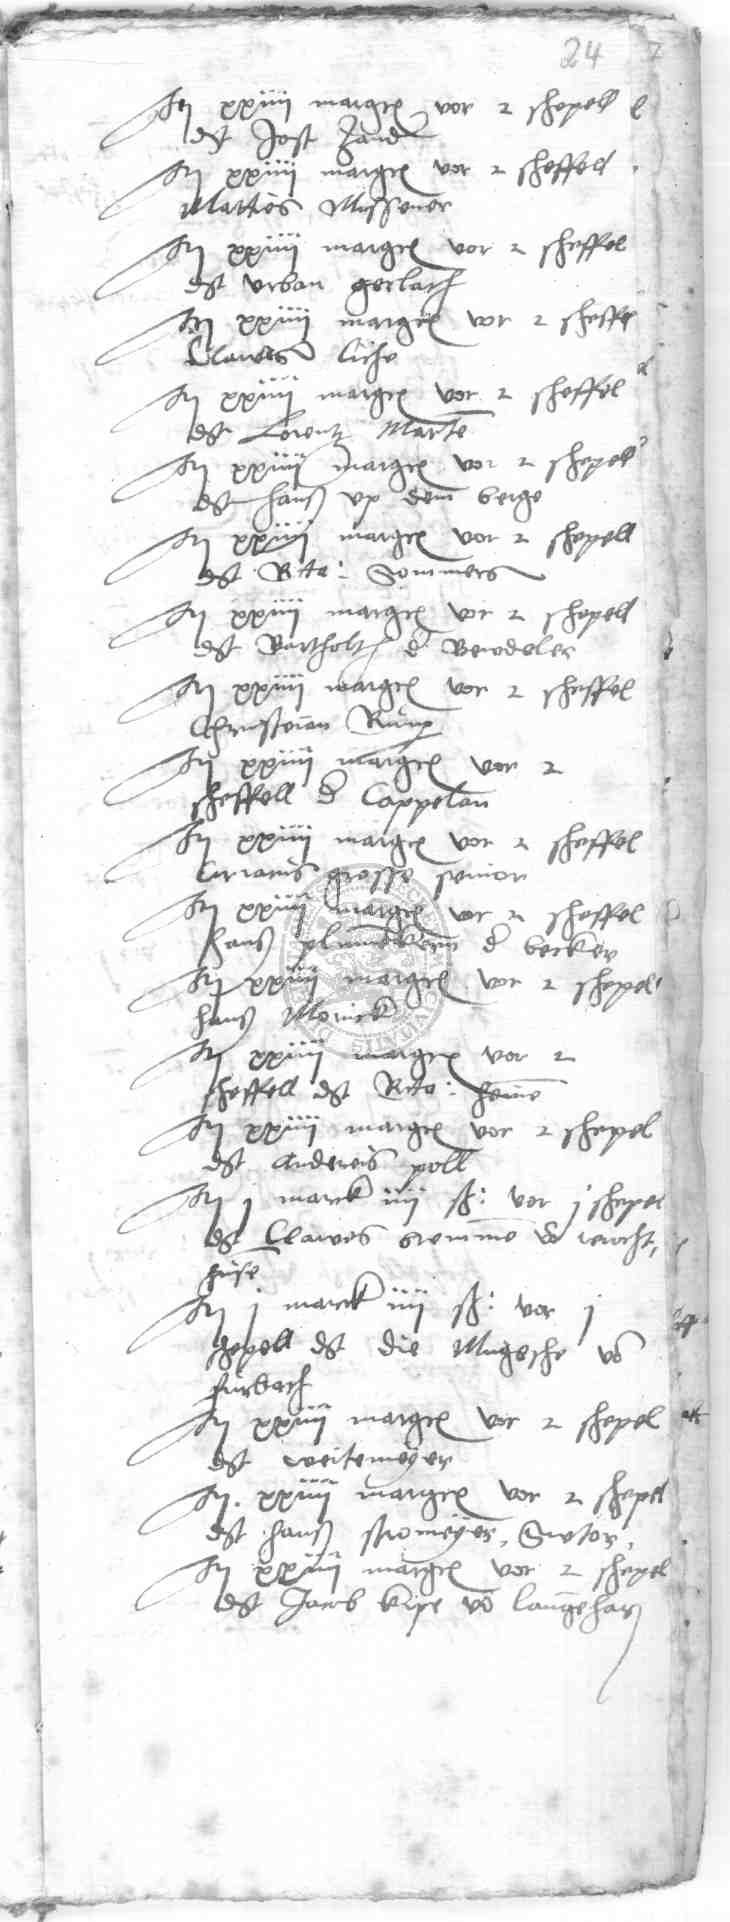 24
It xxiiii margr vor 2 schepel
dt Jost Zand
It xxiiii margr vor 2 scheffell
Mattes Missener
It xxiiii margr vor 2 scheffel
dt urban gerlach
It xxiiii margr vor 2 scheffe
Clawes liche
It xxiiii margr vor 2 scheffel
dt Lorentz Marte
It xxiiii margr vor 2 schepel
dt hans up dem berge
It xxiiii margr vor 2 schepell
dt Sommers
It xxiiii margr vor 2 schepell
dt Bartholt d
It xxiiii margr vor 2 scheffel
Christian
It xxiiii margr vor 2
scheffell d Cappelan
It xxiiii margr vor 2 scheffel
Ciriacus grosse senior
It xxiiii margr vor 2 scheffel
hans d becker
It xxiiii margr vor 2 schepel
hans
It xxiiii margr vor 2
scheffell dt heine
It xxiiii margr vor 2 schepel
dt Andreis poll
It j marck iiii ß: vor j schepel
dt Clawes
huse
It j marck iiii ß: vor j
schepell dt die vo
furbach
It xxiiii margr vor 2 schepel
dt weitemeyer
It xxiiii margr vor 2 schepel
dt hans stromeyer, Sutor,
It xxiiii margr vor 2 schepel
dt Jacob kipe vo